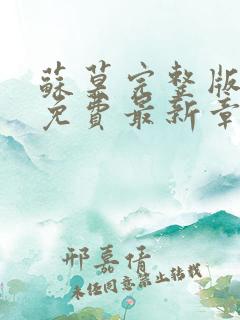 蘇葉完整版
免費最新章
邢嘉倩
未經同意禁止轉載